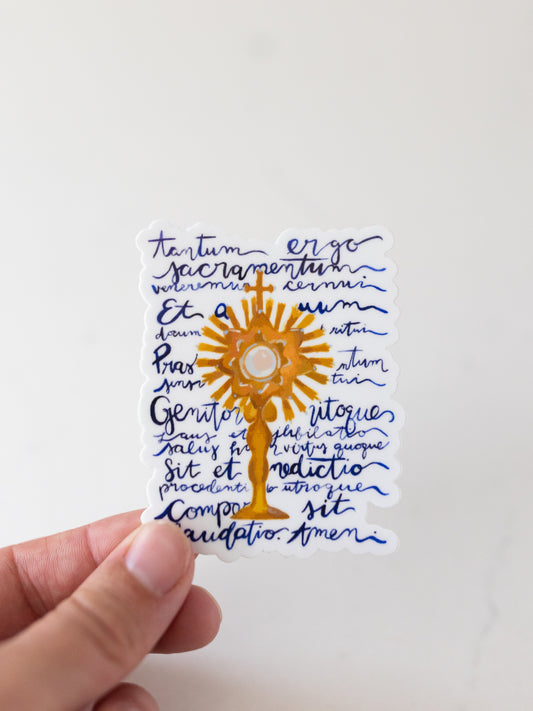 tantum ergo
sacramentum
veneremur cernui
Et a uum
docum ritui
Pras ntum
sens tui
Genitor itoque
Laus et jubilatio
salus h virtus quoque
Sit et nedictio
procedenti b utroque
Compar sit
laudatio. Amen.